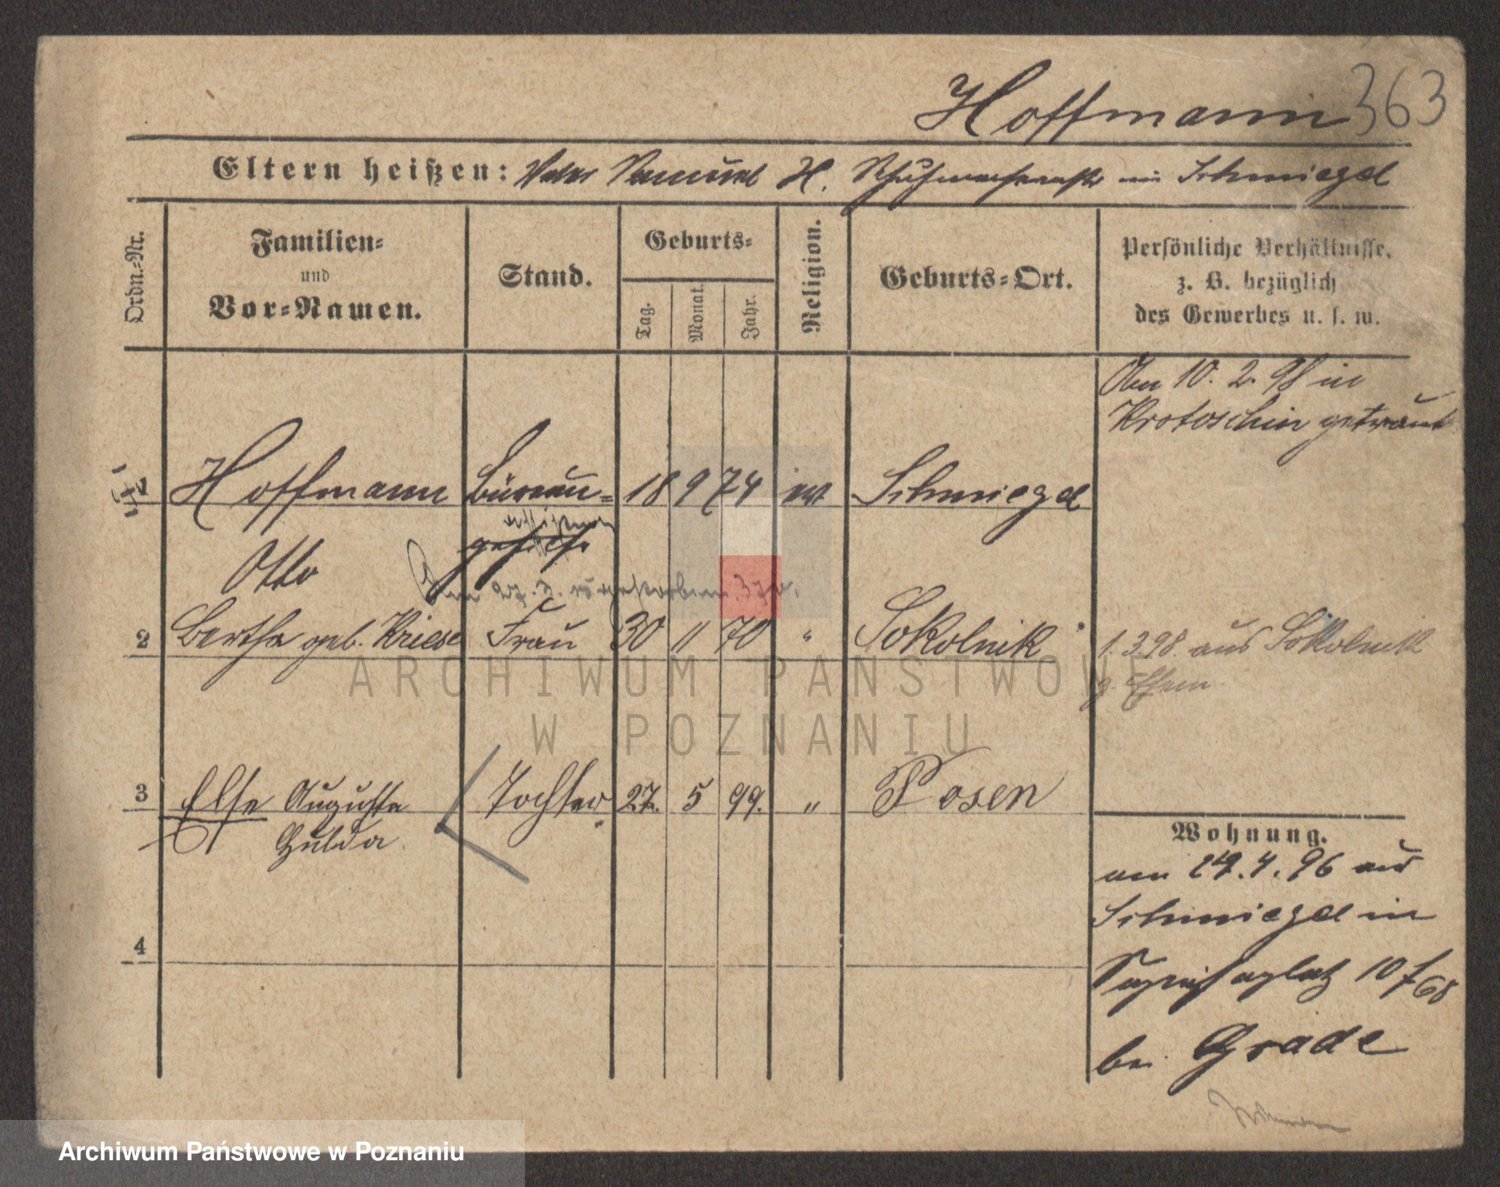 Hoffmann 363
Eltern heißen: Vater Samuel H. Schuhmacher in Schmiegel
Ordn.-Nr.
Familien-
und
Vor-Namen.
Stand.
Geburts-
Tag.
Monat.
Jahr.
Religion.
Geburts-Ort.
Persönliche Verhältnisse,
z. B. bezüglich
des Gewerbes u. s. w.
Am 10. 2. 98 in
Krotoschin getraut
1 Hoffmann Büreau= 18 9 74 ev Schmiegel
Otto
2 Bertha geb. Kriese Frau 30 11 70 " Sokolnik
1. 3 98 aus Sokolnik
3 Else Auguste Tochter 27. 5 99. " Posen
Hulda
4
Wohnung.
am 29. 4. 96 aus
Schmiegel in
Sapiehaplatz 10
bei Grade
ARCHIWUM PAŃSTWOWE
W POZNANIU
Archiwum Państwowe w Poznaniu